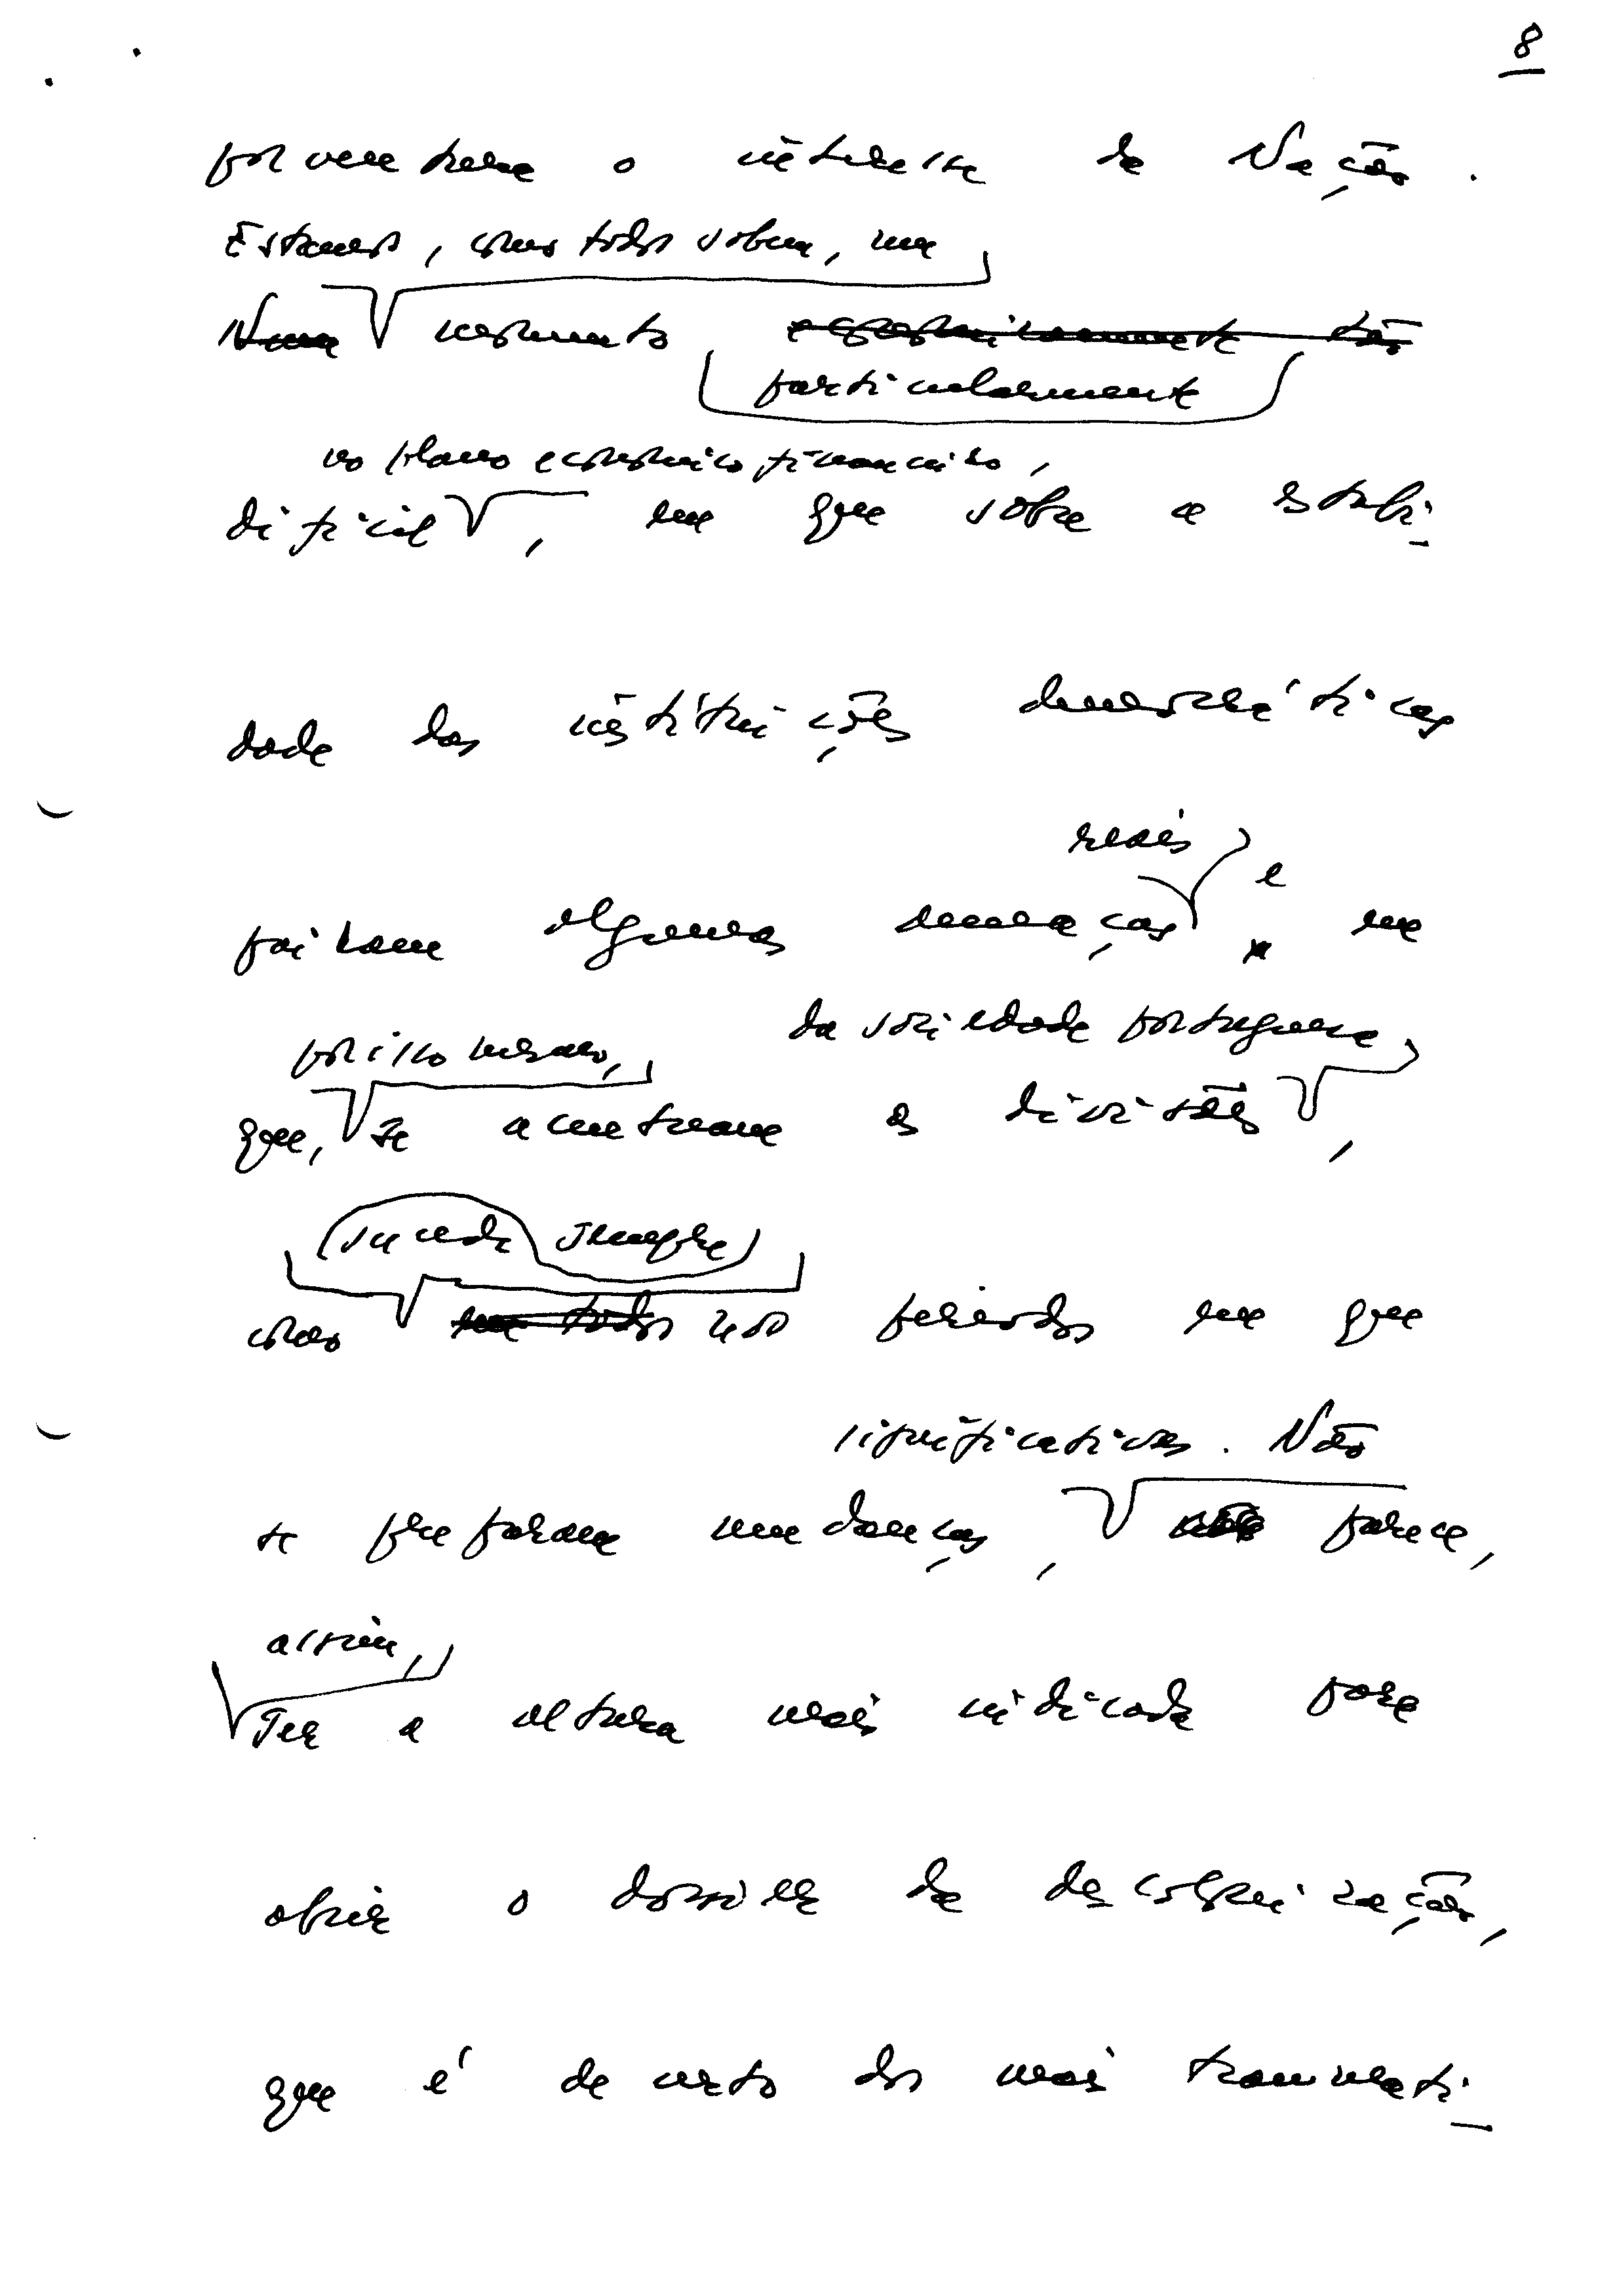 8
porventura o interesse da Nação.
Estamos, como todos sabem, num
Num momento economicamente tão
particularmente
no plano económico financeiro,
difícil, em que sobre a estabi-
dade das instituições democráticas
pairam algumas ameaças e em
reais
por isso mesmo, da sociedade portuguesa
que, se acentuam as divisões,
(sucede sempre)
como em todos nos períodos em que
significativas. Não
se preparam mudanças, não parece,
assim,
ser a altura mais indicada para
abrir o dossier da descolonização,
que é decerto dos mais traumati-